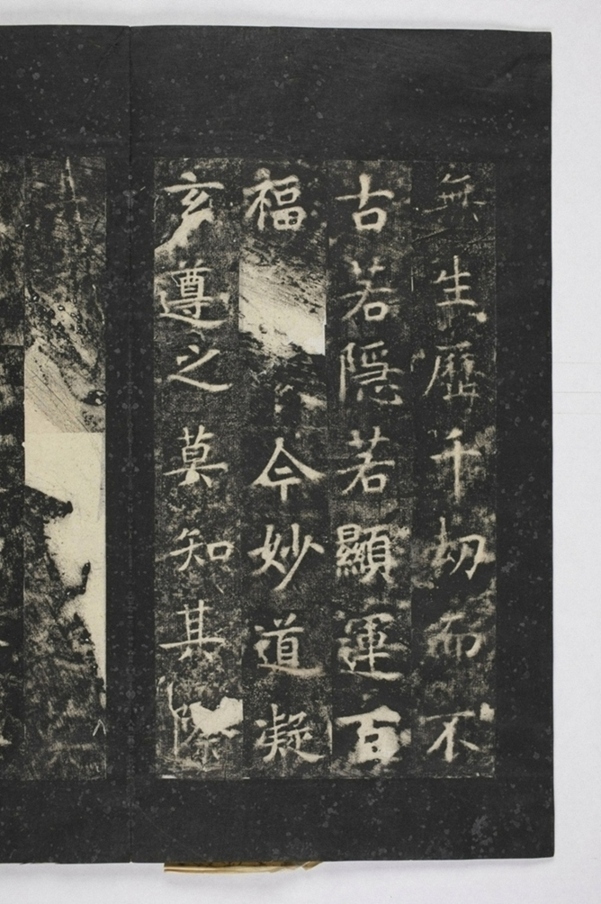 無生歷千劫而不
古若隱若顯運百
福今妙道凝
玄遵之莫知其際